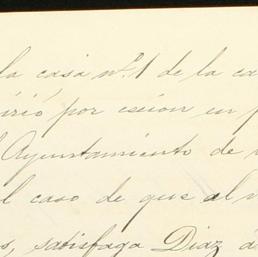 la casa nº 1 de la ca
irió por cesion en p
l Ayuntamiento de
l caso de que al
s, satisfaga Diaz á